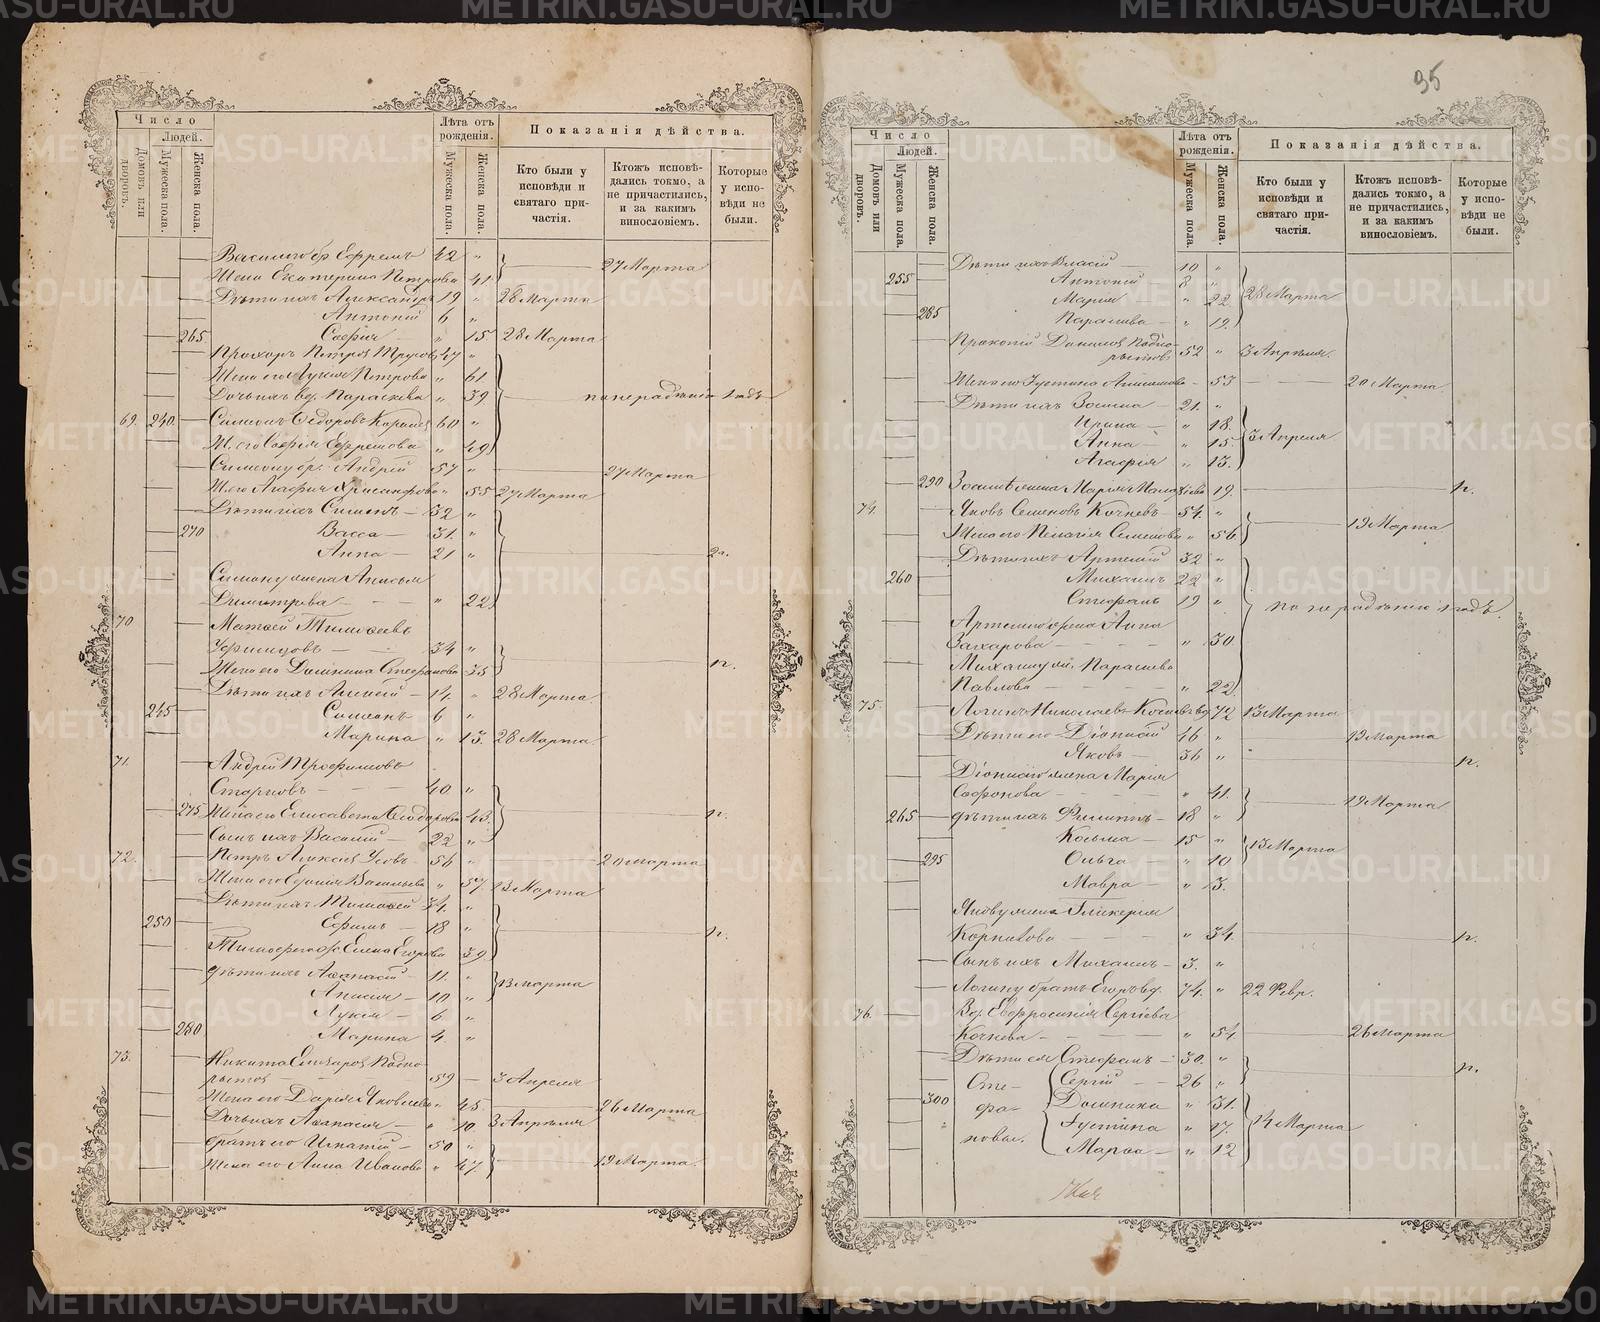 METRIKI.GASO-URAL.RU
95
Число
Людей.
Домовъ или дворовъ.
Мужеска пола.
Женска пола.
Лѣта отъ рожденія.
Мужеска пола.
Женска пола.
Показанія дѣйства.
Кто были у исповѣди и святаго причастія.
Ктожъ исповѣдались токмо, а не причастились, и за какимъ винословіемъ.
Которые у исповѣди не были.
42 "
Жена Екатерина Петрова 41 27 Марта
Дѣти ихъ Александръ 19 " 28 Марта
Антоній 6 "
265 Софія " 15 28 Марта
Прохоръ Петровъ 47 "
Жена его Лукія Петрова " 61
Дочь ихъ вд. Параскева " 39 по нерадѣнію
69. 240 Симеонъ Ѳедоровъ 60 "
Ж. его Софія Ефремова " 49
Симеону бр. Андрей 57 " 27 Марта
Ж. его Агафія Хрисанфова " 55 27 Марта
Дѣти ихъ Симеонъ 32 "
270 Васса 31 "
Анна 21 "
Симону жена Анисья
Димитрева " 22
70 Матвей Тимоѳеевъ
34 "
Жена его Домникия Стефанова 35 н.
Дѣти ихъ Алексей 14 " 28 Марта
245 Симеонъ 6 "
Марина " 13. 28 Марта.
71. Андрей Трофимовъ
40 "
275 Жена его Елисавета Ѳеодорова 43. н.
Сынъ ихъ Василій 22 "
72. Петръ Алексѣевъ Усовъ 56 " 20 Марта
Жена его Евгенія Васильева " 57 13 Марта
Дѣти ихъ Тимоѳей 34. "
250 Ефимъ 18 " н.
Елена Егорова 39
Дѣти ихъ Аѳанасій 11. " 13 марта
Анисия 10 "
Лукія 6 "
280 Марина 4 "
73. Никита Елизаровъ Подко-
рытовъ 59 3 Апреля
Жена его Дарія Яковлева " 45 26 Марта
Дочь ихъ Аѳанасія " 10 3 Апрѣля
братъ его Игнатій 50 "
Жена его Анна Иванова " 47 19 Марта.
Число
Людей.
Домовъ или дворовъ.
Мужеска пола.
Женска пола.
Лѣта отъ рожденія.
Мужеска пола.
Женска пола.
Показанія дѣйства.
Кто были у исповѣди и святаго причастія.
Ктожъ исповѣдались токмо, а не причастились, и за какимъ винословіемъ.
Которые у исповѣди не были.
Дѣти ихъ Власій 10 "
255 Антоній 8 "
Мария " 22. 28 Марта
285 Параскева " 19.
Прокопій Даниловъ Подко-
рытовъ 52 " 3 Апрѣля.
Жена его Іустина " 53 20 Марта
Дѣти ихъ Зосима 21. "
Ирина " 18.
Анна " 15 3 Апреля
Агафія " 13.
290 Зосимѣ жена Марія " 19. н.
74. Яковъ Семеновъ Кочневъ 54. "
Жена его Пелагія Семенова " 56 19 Марта
Дѣти ихъ Артемій 32 "
260 Михаилъ 22 "
Стефанъ 19 " по нерадѣнію
Артемію жена Анна
Захарова " 30.
Михаилу ж. Параскева
Павлова " 22
75. Логинъ Николаевъ Кочневъ вд. 72 13 Марта
Дѣти его Діонисій 46 " 19 Марта
Яковъ 36 " н.
Діонисію жена Марія
Софонова " 41. 19 Марта
265 Дѣти ихъ Филиппъ 18 "
Козьма 15 " 13 Марта
295 Ольга " 10
Мавра " 3.
Якову жена Гликерия
Корнилова " 34. н.
Сынъ ихъ Михаилъ 3. "
Логину братъ Егоръ вд. 74. " 22 Февр.
76. Вд. Евфросинія Сергіева
Кочнева " 54. 26 Марта
Дѣти ея Стефанъ 30. "
Сте- Сергій 26 " н.
300 фа- Домника " 31.
новы. Іустина " 17. 14 Марта
Марѳа " 12